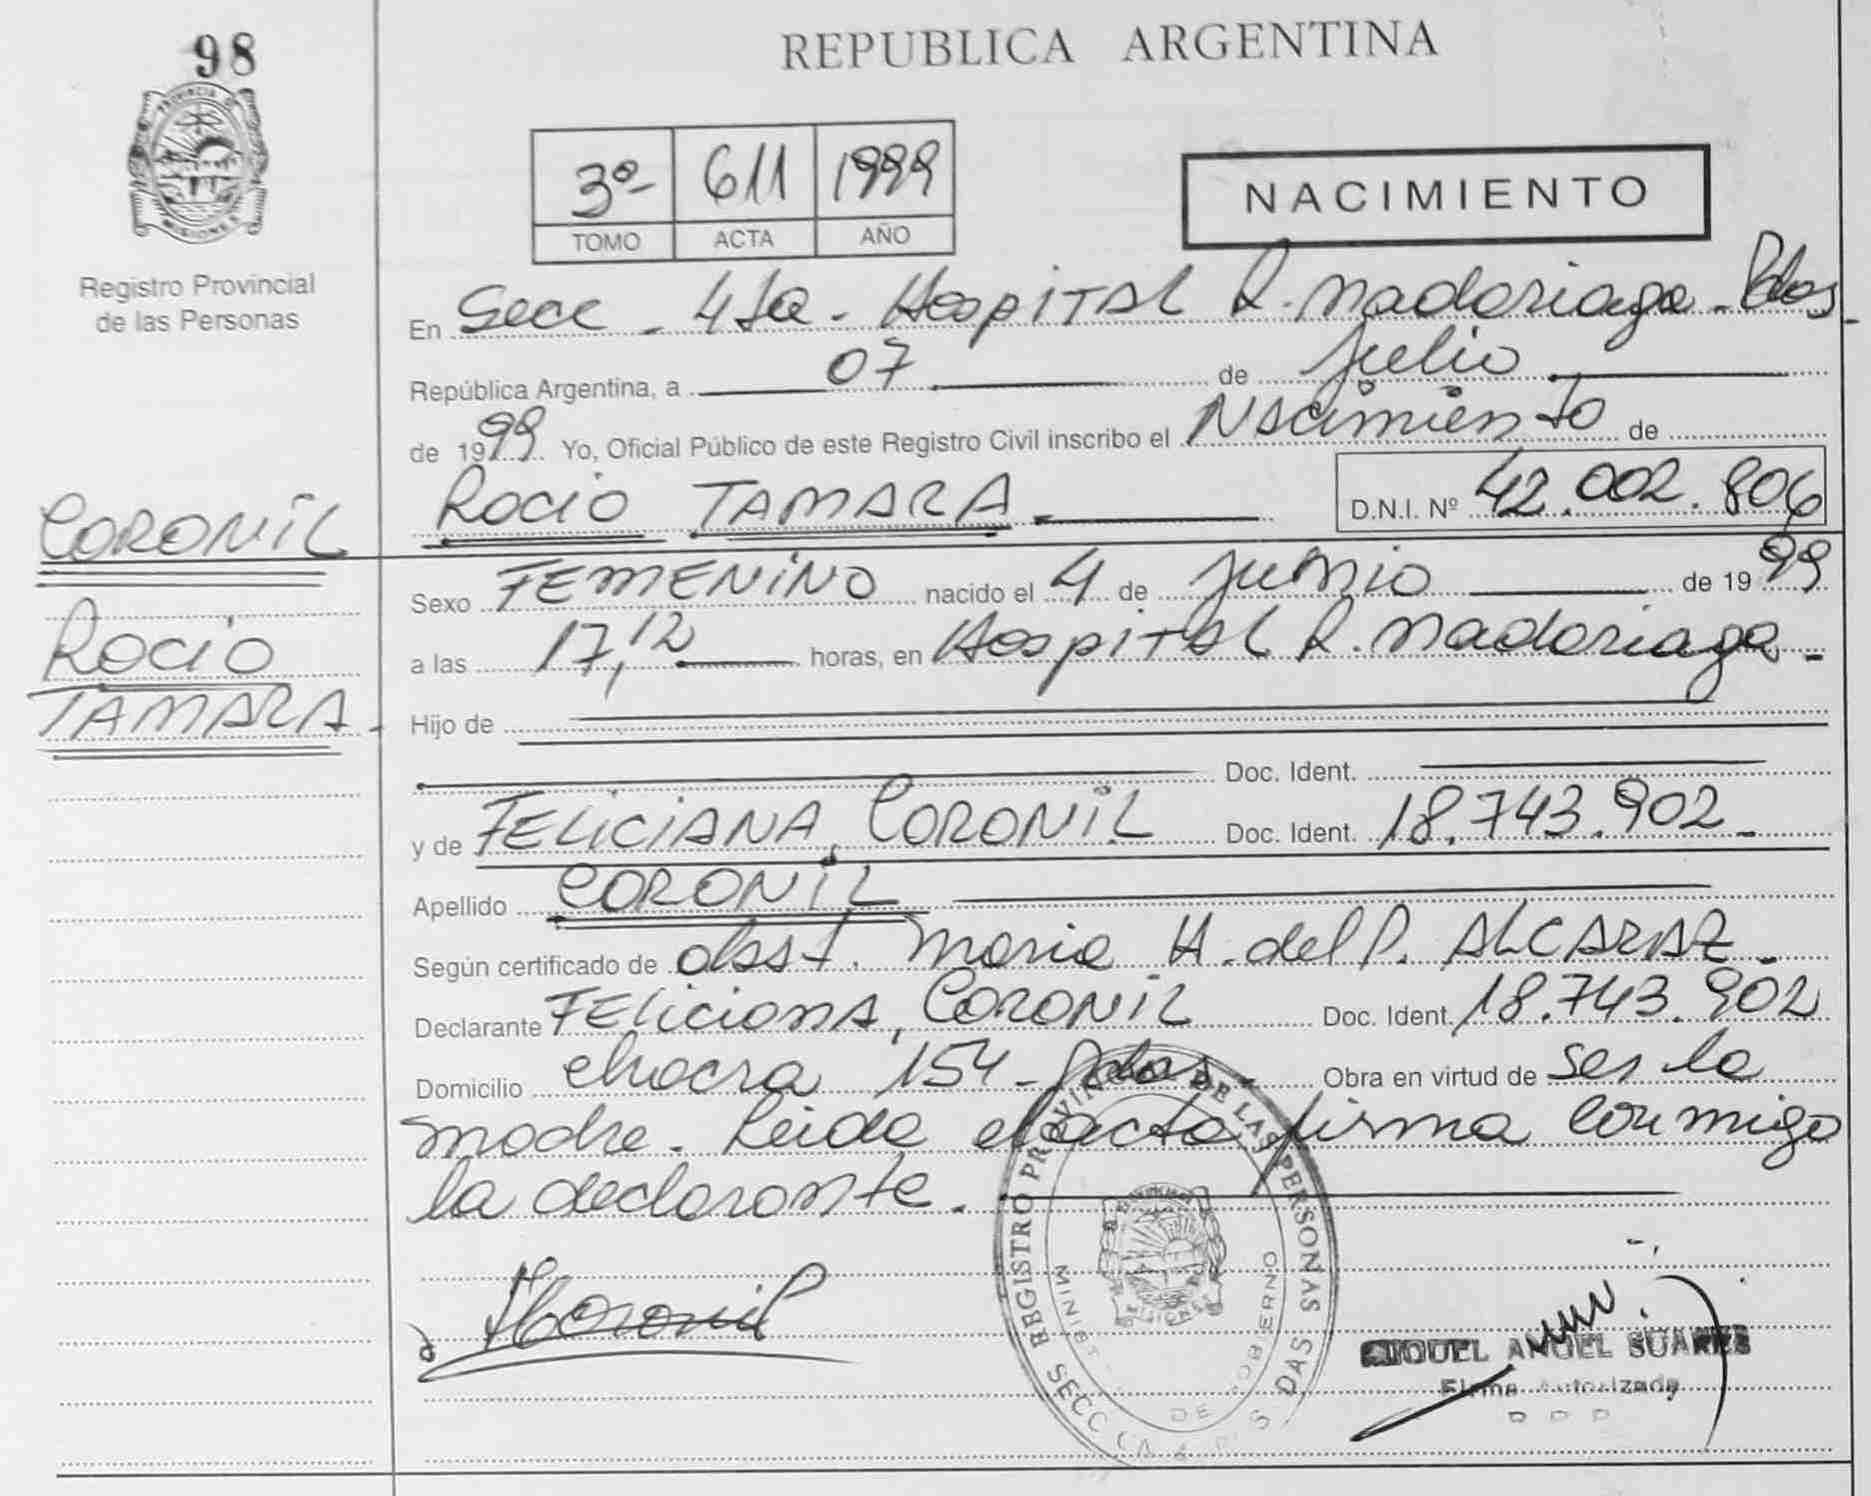 98
REPUBLICA ARGENTINA
PROVINCIA D
MISIONES
3º 611 1999
TOMO ACTA AÑO
NACIMIENTO
Registro Provincial
de las Personas
En Secc. 4ta. Hospital R. Madariaga. Pdas.
República Argentina, a 07 de Julio
de 1999 Yo, Oficial Público de este Registro Civil inscribo el Nacimiento de
Rocio TAMARA. D.N.I. Nº 42.002.806
CORONIL
Rocio
TAMARA.
Sexo FEMENINO nacido el 4 de Junio de 1999
a las 17,12 horas, en Hospital R. Madariaga.
Hijo de
Doc. Ident.
y de FELICIANA, CORONIL Doc. Ident. 18.743.902.
Apellido CORONIL
Según certificado de obst. Maria H. del P. ALCARAZ.
Declarante FELICIANA, CORONIL Doc. Ident. 18.743.902
Domicilio chacra 154 - Pdas. Obra en virtud de ser la
madre. Leida el acta firma conmigo
la declarante.
REGISTRO PROVINCIAL DE LAS PERSONAS
DE GOBIERNO
MIGUEL ANGEL SUAREZ
Firma Autorizada